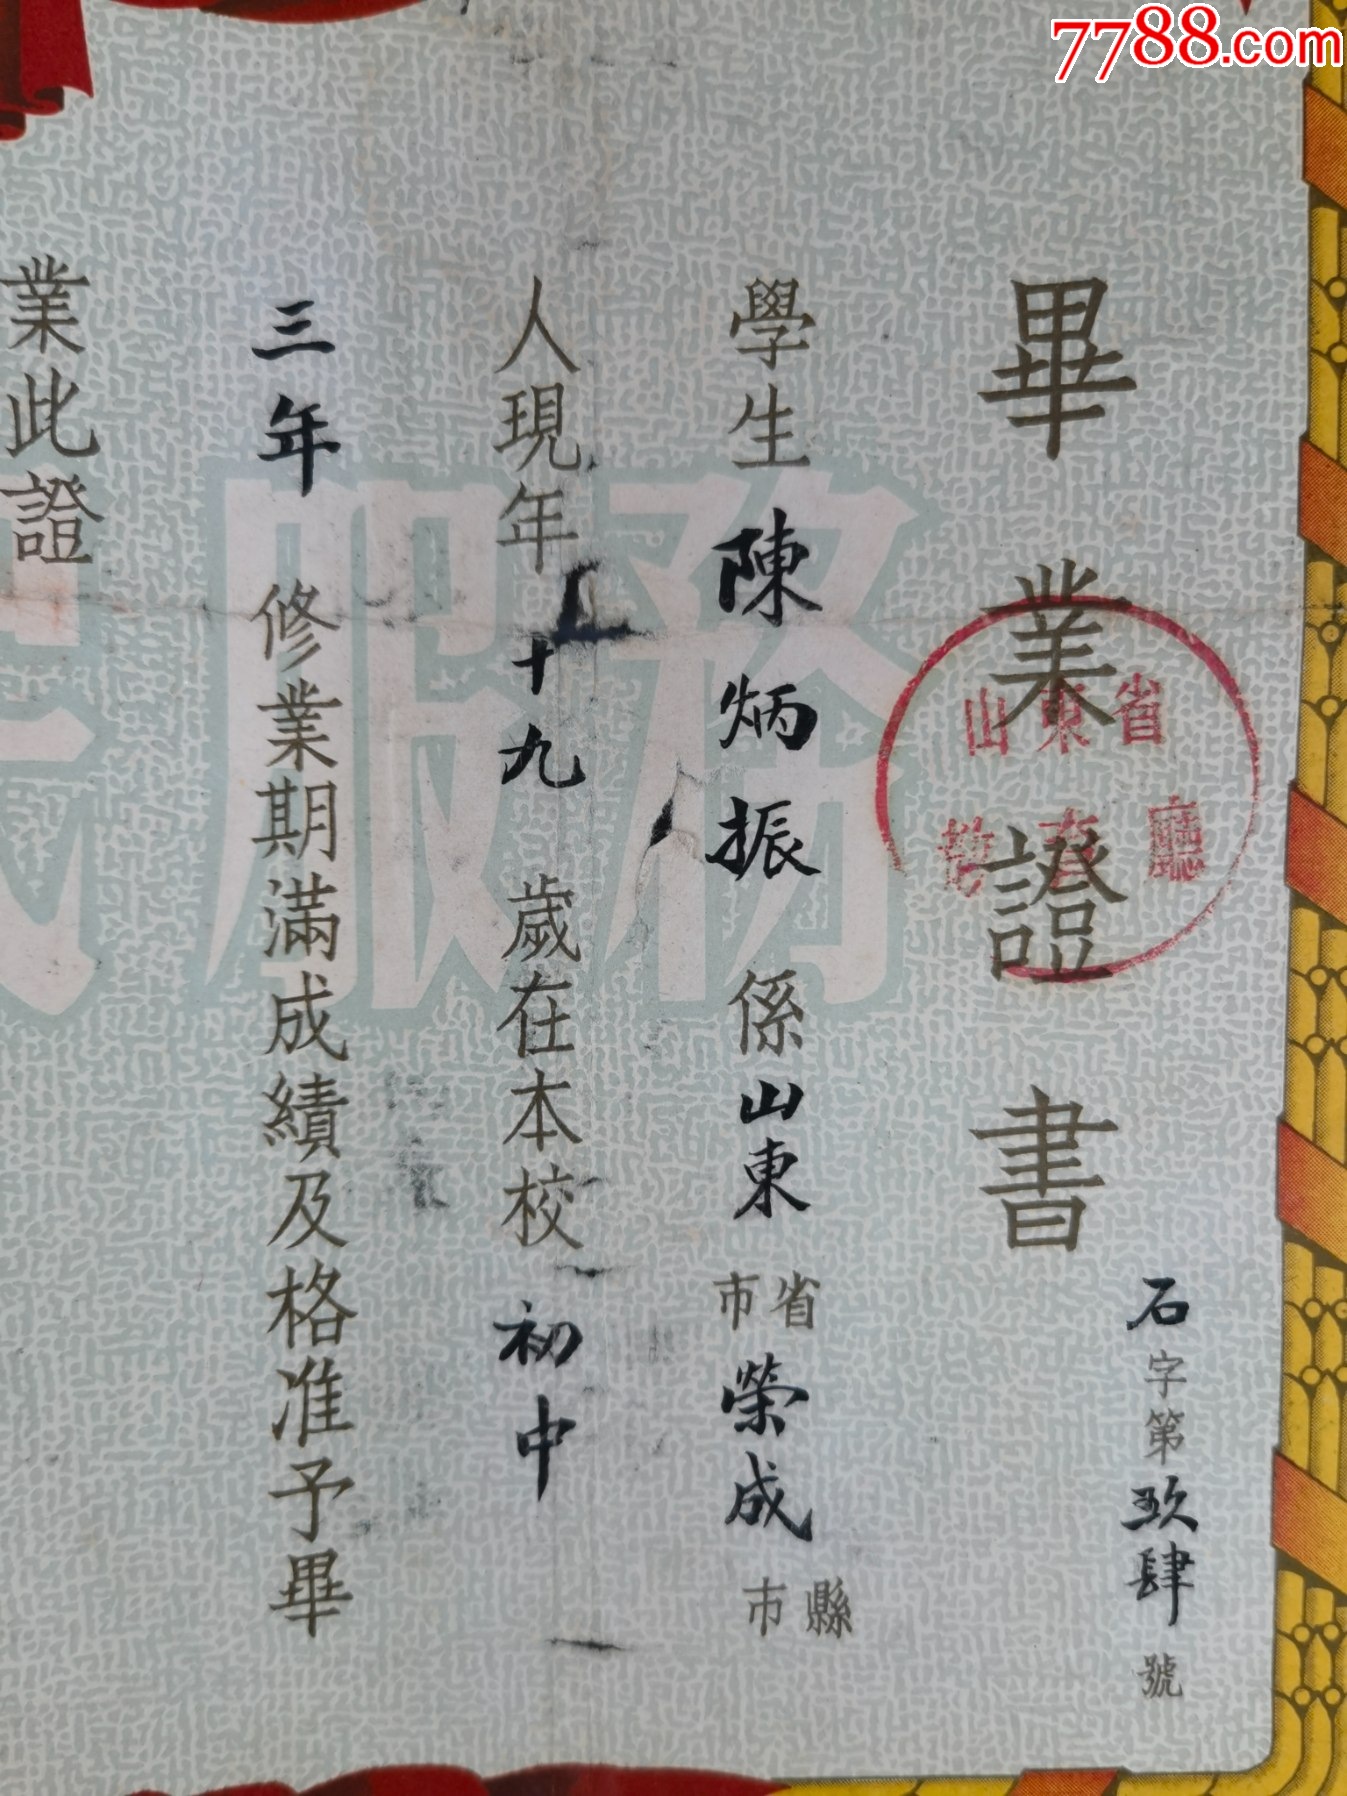 7788.com
畢業證書
石字第玖肆號
山東省
教育廳
學生陳炳振係山東省市榮成縣市
人現年十九歲在本校初中
三年修業期滿成績及格准予畢
業此證
服務